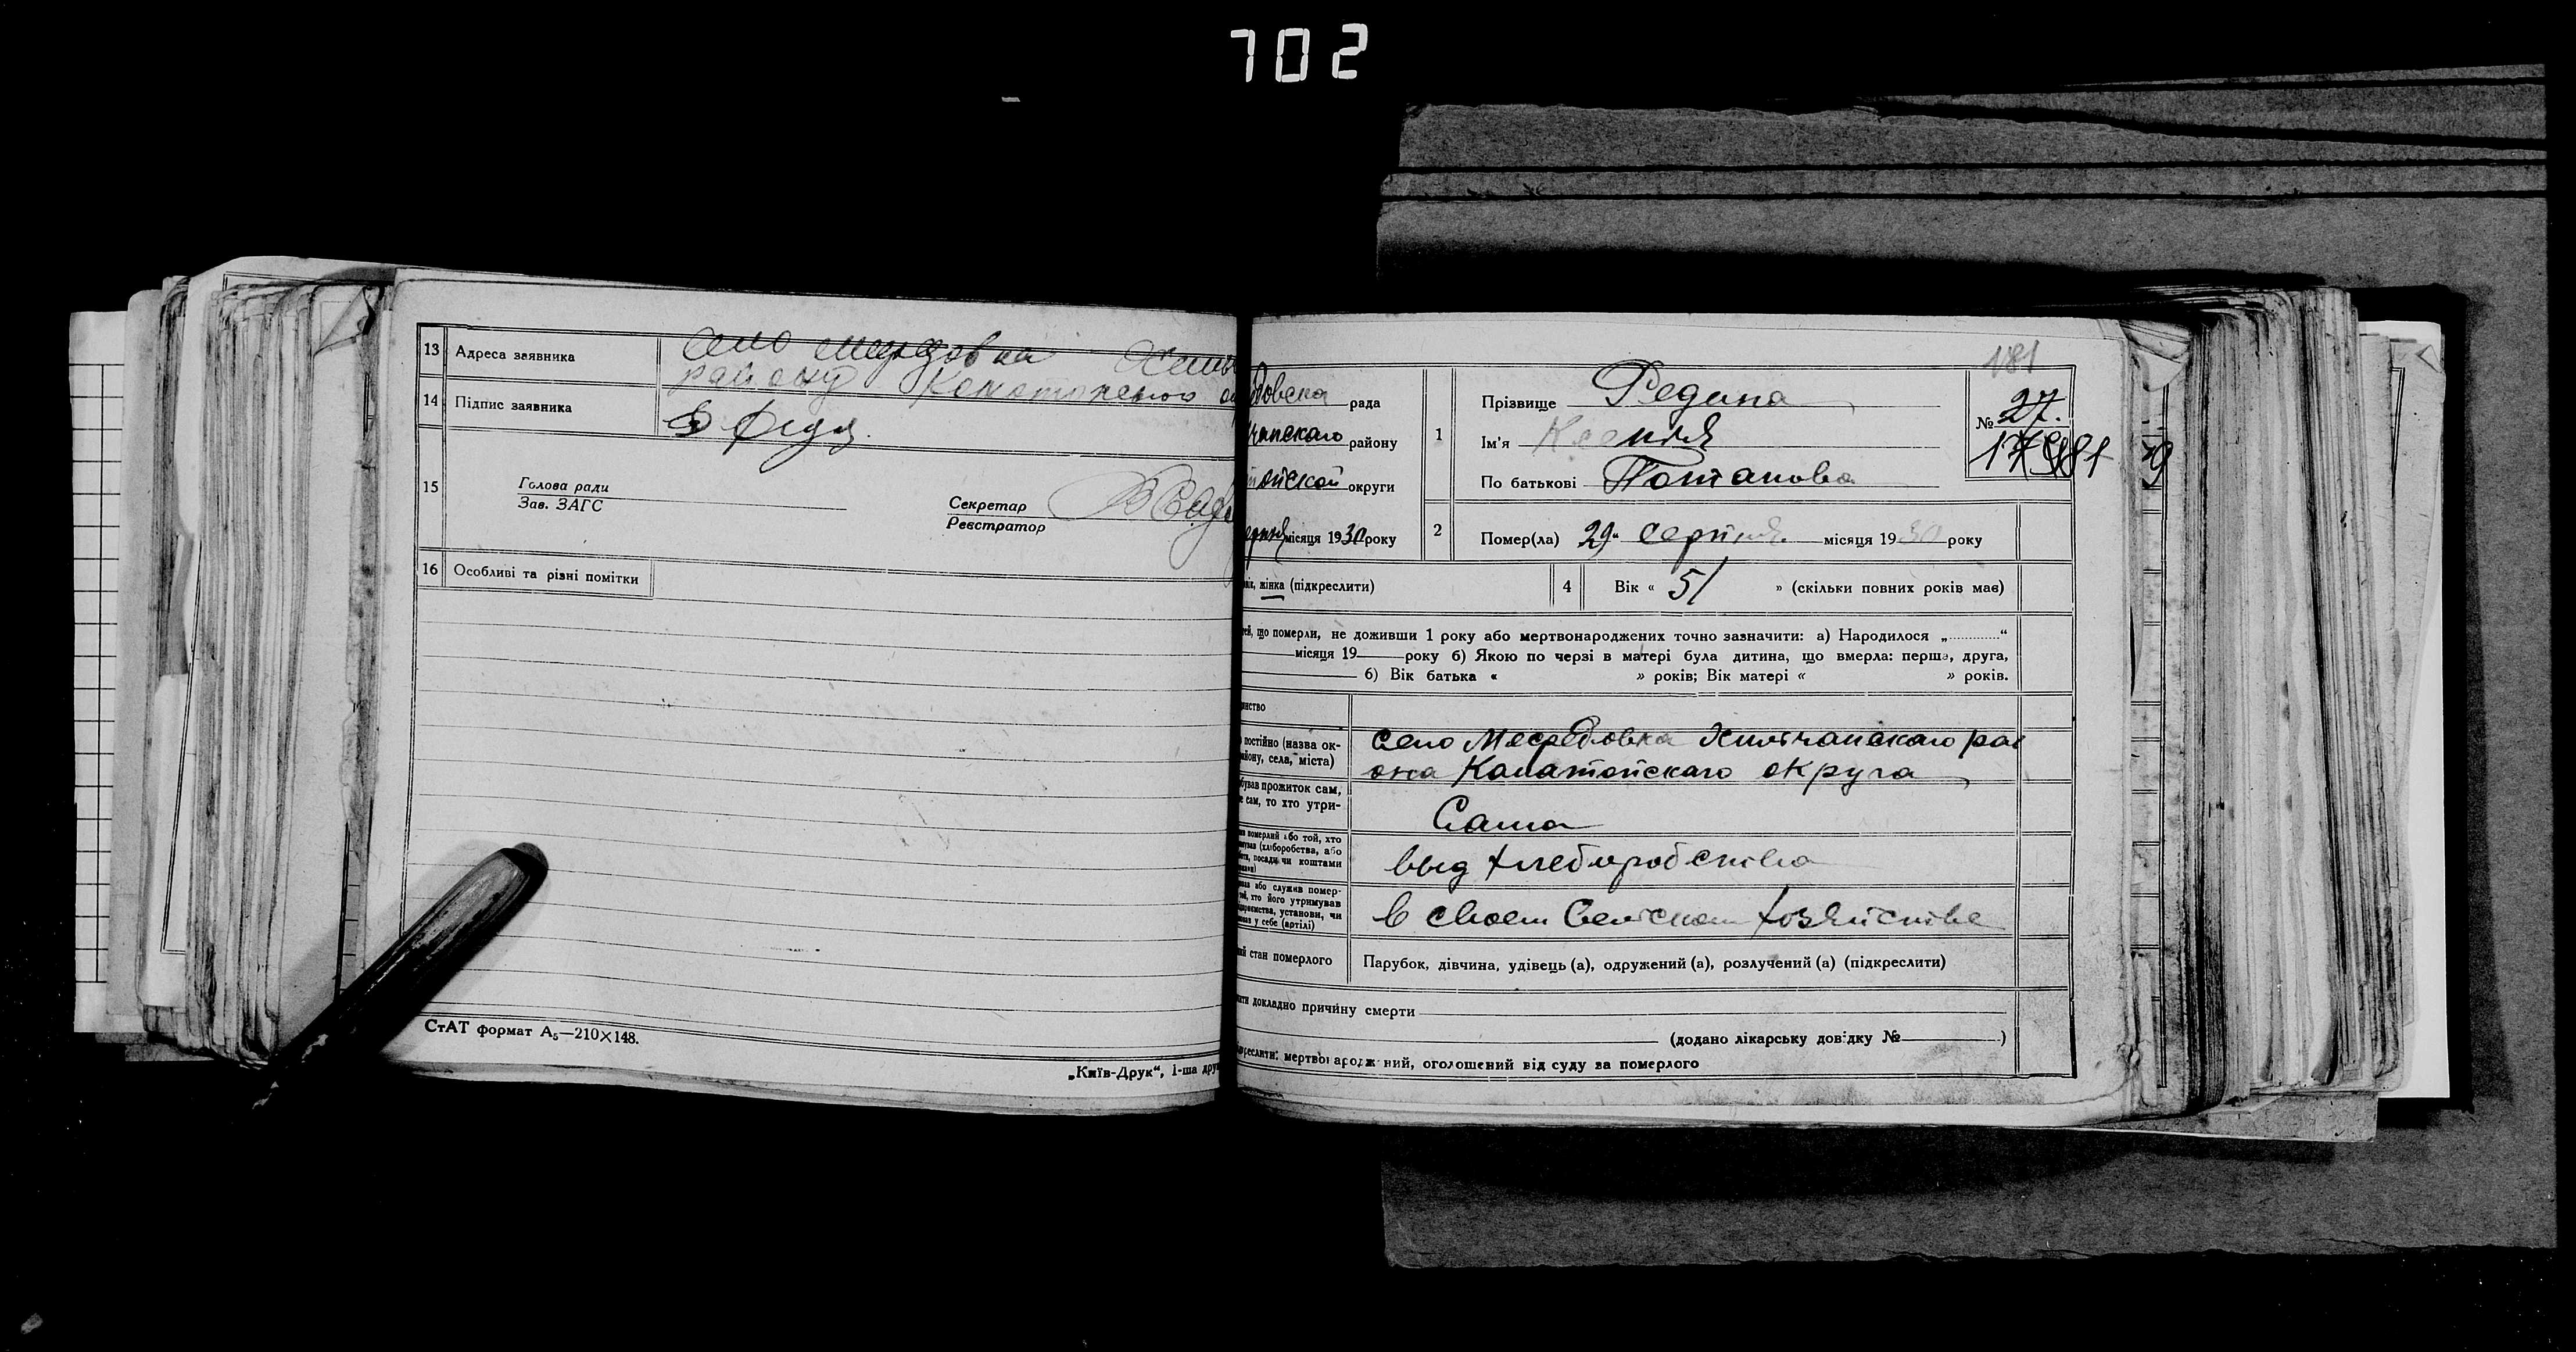 702
13 Адреса заявника село
району Конотопского
14 Підпис заявника
15 Голова ради
Зав. ЗАГС
Секретар
Реєстратор
16 Особливі та різні помітки
СтАТ формат А5—210×148.
„Київ-Друк“, і-ша
181
рада
району
округи
місяця 1930 року
1 Прізвище Редина
Ім'я Ксения
По батькові Потапова
№ 27.
2 Помер(ла) 29 серпня місяця 1930 року
жінка (підкреслити)
4 Вік « 51 » (скільки повних років має)
що померли, не доживши 1 року або мертвонароджених точно зазначити: а) Народилося „ “
місяця 19 року б) Якою по черзі в матері була дитина, що вмерла: перша, друга,
6) Вік батька « » років; Вік матері « » років.
постійно (назва ок-
району, села, міста)
село Хильчанскаго рай
она Канатопскаго округа
прожиток сам,
сам, то хто утри-
Сама
померлий або той, хто
(хліборобства, або
посади чи коштами
выд хлеборобства
або служив помер-
хто його утримував
установи, чи
у себе (артілі)
в своем Селском хозяйстве
стан померлого
Парубок, дівчина, удівець (а), одружений (а), розлучений (а) (підкреслити)
докладно причину смерти
(додано лікарську довідку № )
мертвонароджений, оголошений від суду за померлого